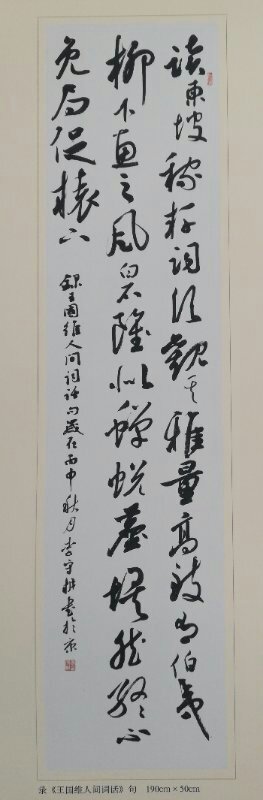 读東坡稼轩词须觀其雅量高致有伯夷
柳下惠之风白石雖似蟬蜕塵埃然终不
免局促辕下
録王國維人间词话句歲在丙申秋月李守书於京
录《王国维人间词话》句 190cm×50cm